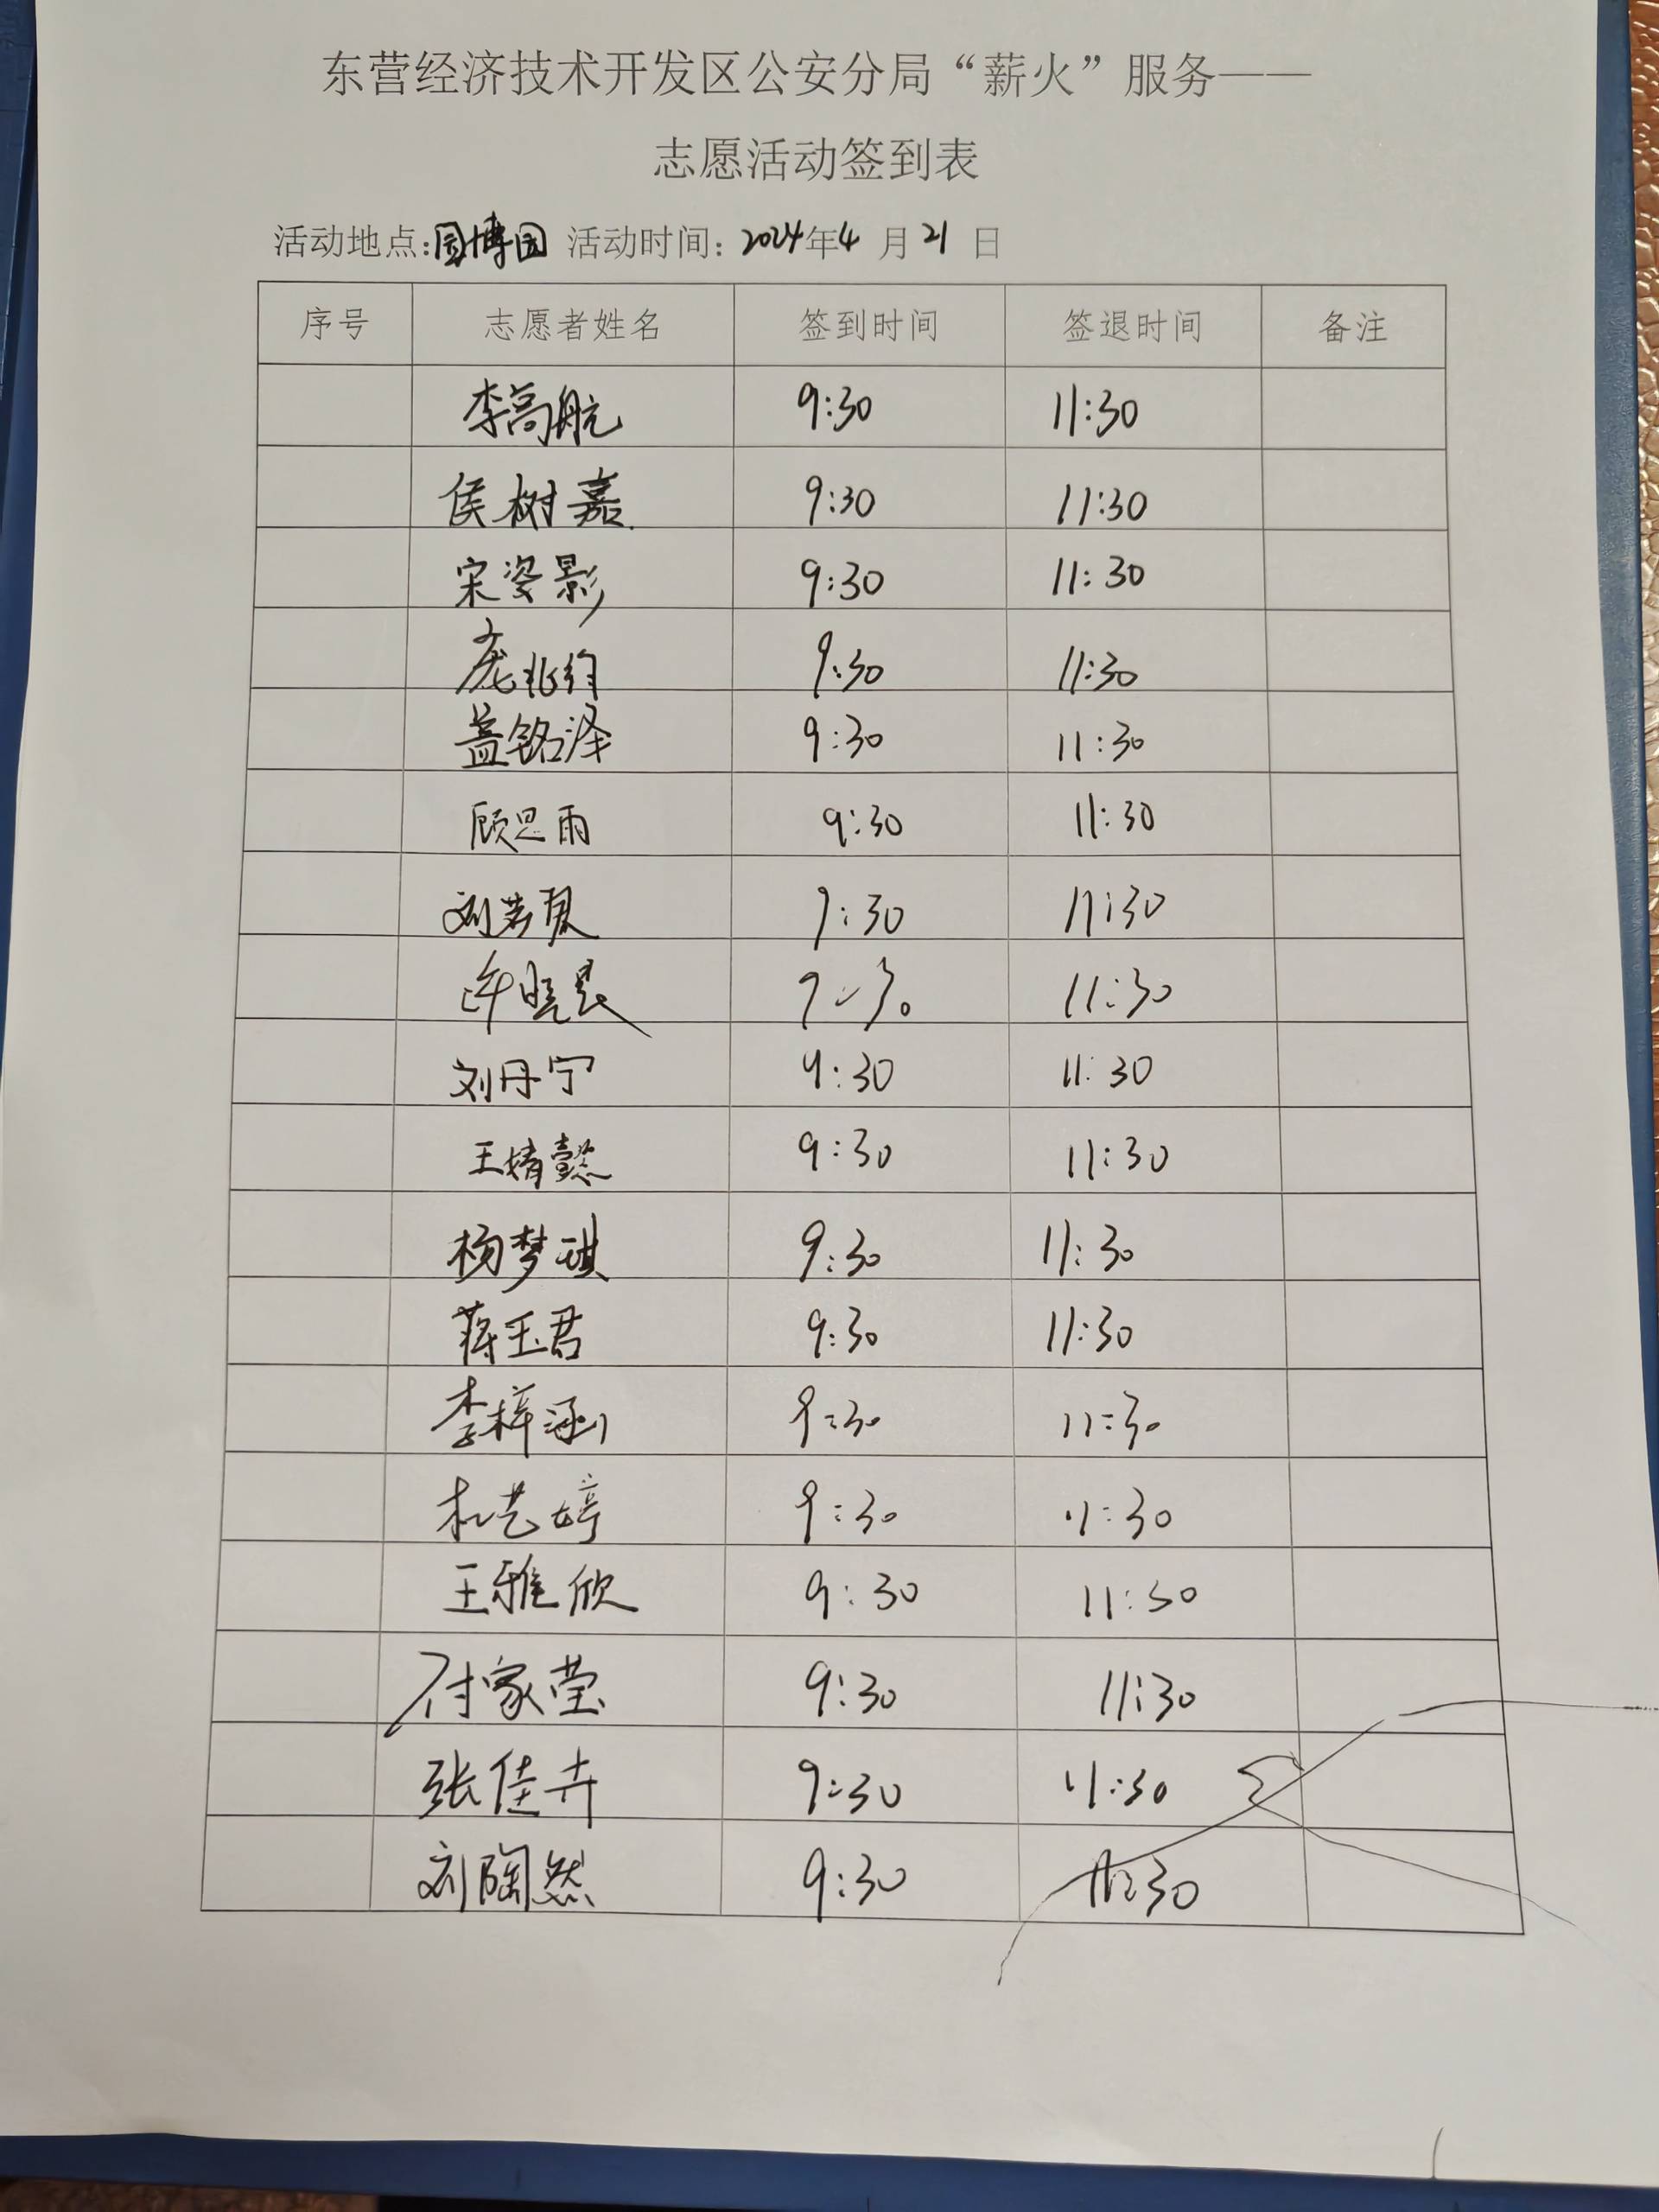 东营经济技术开发区公安分局“薪火”服务——
志愿活动签到表
活动地点:园博园 活动时间: 2024年4月21日
序号 志愿者姓名 签到时间 签退时间 备注
李高航 9:30 11:30
侯树嘉 9:30 11:30
宋姿影 9:30 11:30
9:30 11:30
盖铭泽 9:30 11:30
顾思雨 9:30 11:30
刘若 9:30 11:30
牟晓晨 9:30 11:30
刘丹宁 9:30 11:30
王婧懿 9:30 11:30
杨梦琪 9:30 11:30
蒋玉君 9:30 11:30
李梓涵 9:30 11:30
杜艺婷 9:30 11:30
王雅欣 9:30 11:30
付家莹 9:30 11:30
张佳卉 9:30 11:30
刘陶然 9:30 11:30